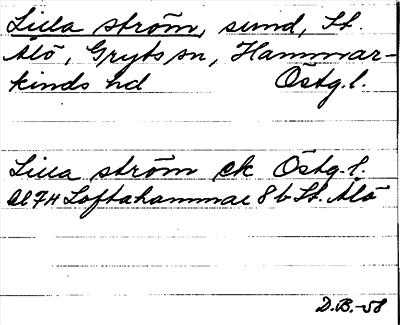 Lilla ström, sund, St.
Ålö, Gryts sn, Hammar-
kinds hd Östg.l.
Lilla ström ek Östg.l.
Loftahammar 8 b St. Ålö
D.B.-58